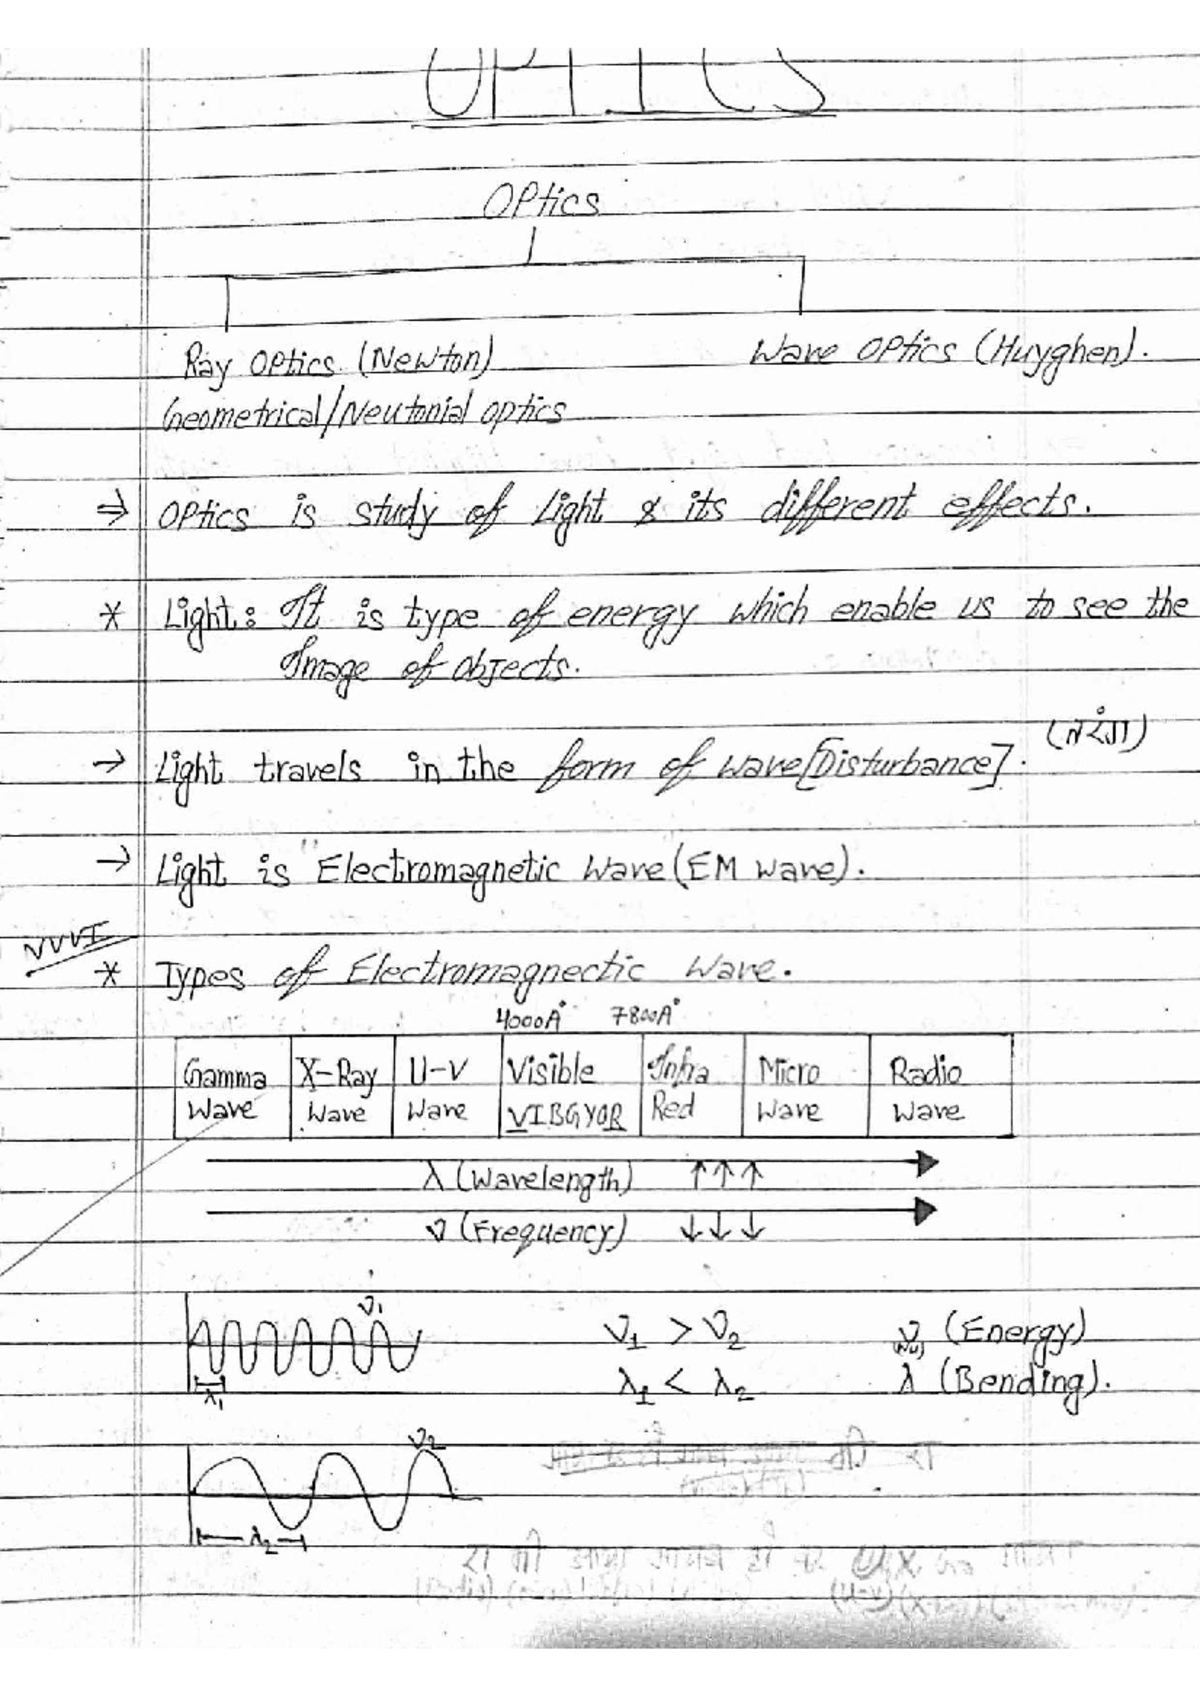 OPTICS
OPtics
Ray OPtics (Newton)
Wave OPtics (Huyghen).
Geometrical/Neutonial optics
⇒ OPtics is study of Light & its different effects.
* Light: It is type of energy which enable us to see the
Image of Objects.
(तरंग)
→ Light travels in the form of wave[Disturbance].
→ Light is "Electromagnetic Wave(EM wave).
VVVI
* Types of Electromagnectic Wave.
4000Å 7800Å
Gamma Wave
X-Ray Wave
U-V Wave
Visible VIBGYOR
Infra Red
Micro Wave
Radio Wave
λ (Wavelength) ↑↑↑
ν (Frequency) ↓↓↓
ν₁
ν₁ > ν₂
ν (Energy)
(nu)
λ₁ < λ₂
λ (Bending).
λ₁
ν₂
λ₂